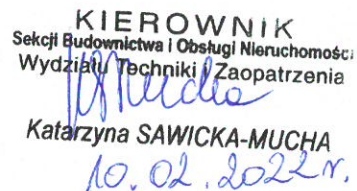 KIEROWNIK
Sekcji Budownictwa i Obsługi Nieruchomości
Wydziału Techniki i Zaopatrzenia
Katarzyna SAWICKA-MUCHA
10.02.2022 r.